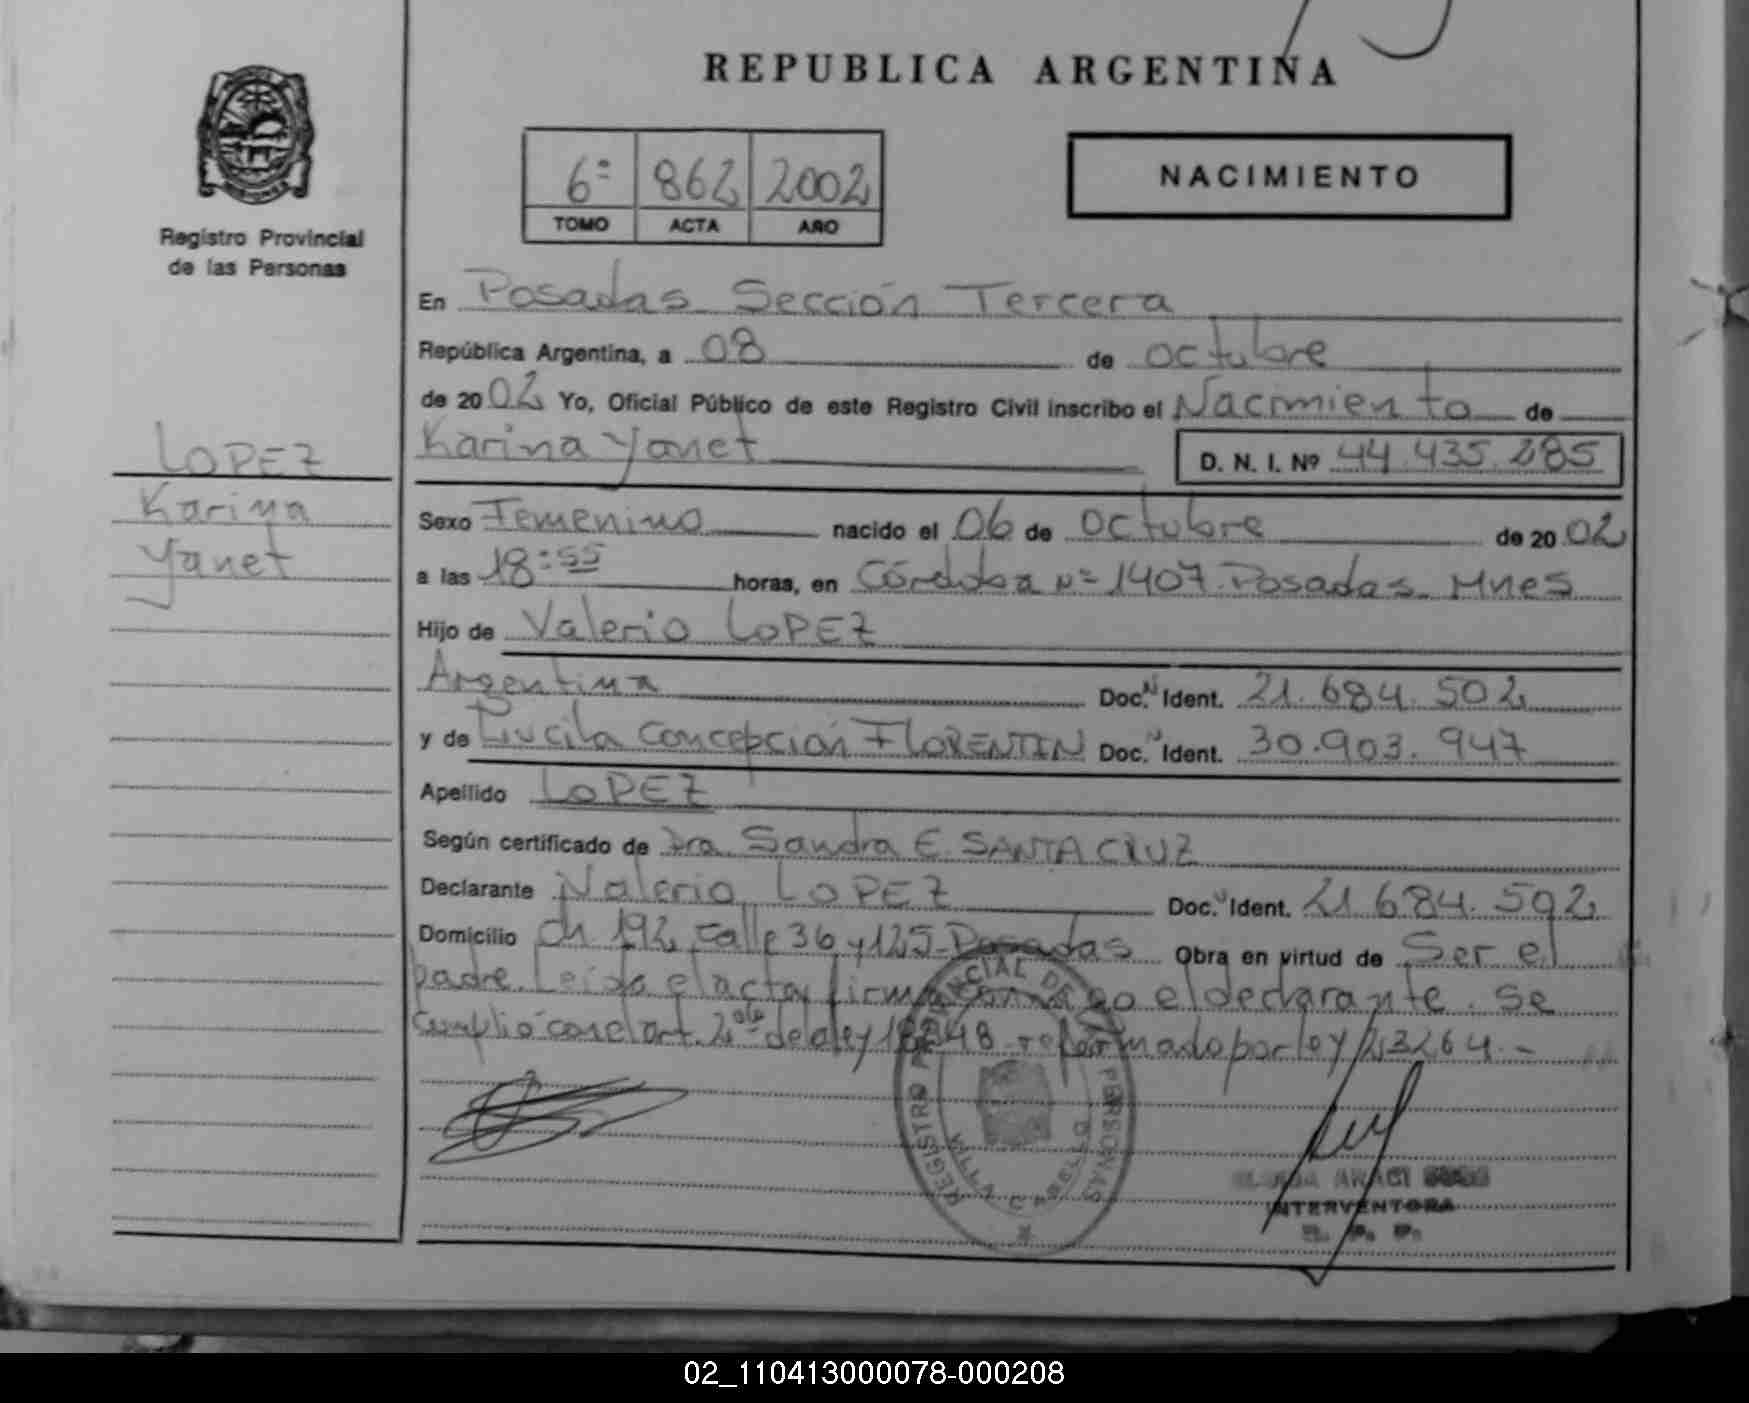 REPUBLICA ARGENTINA
Registro Provincial
de las Personas
6º 862 2002
TOMO ACTA AÑO
NACIMIENTO
LOPEZ
Karina
Yanet
En Posadas Sección Tercera
República Argentina, a 08 de octubre
de 2002 Yo, Oficial Público de este Registro Civil inscribo el Nacimiento de
Karina Yanet D. N. I. Nº 44.435.285
Sexo Femenino nacido el 06 de octubre de 2002
a las 18:55 horas, en Córdoba Nº 1407. Posadas. Mnes
Hijo de Valerio LOPEZ
Argentina Doc. N Ident. 21.684.502
y de Lucila Concepción FLORENTIN Doc. N Ident. 30.903.947
Apellido LOPEZ
Según certificado de Dra Sandra E. SANTA CRUZ
Declarante Valerio LOPEZ Doc. N Ident. 21.684.592
Domicilio Ch. 192, calle 36 y 125- Posadas Obra en virtud de Ser el
padre. Leida el acta, firma conmigo el declarante. Se
cumplió con el art. 2do de la ley 18248 reformado por ley 23264.-
REGISTRO PROVINCIAL DE LAS PERSONAS
VILLA CABELLO
ARACI
INTERVENTORA
R. P. P.
02_110413000078-000208